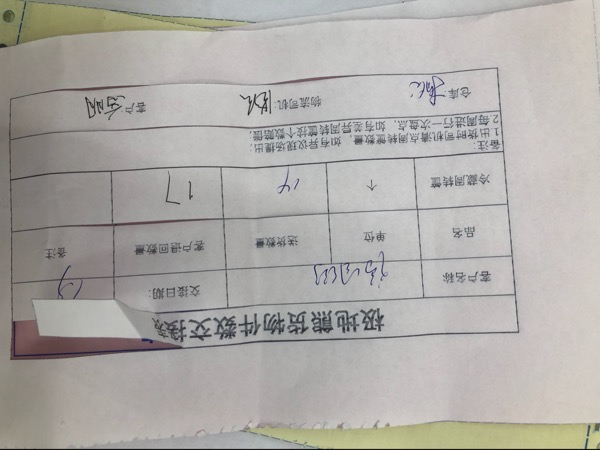 极地熊货物件数交接
客户名称 交接日期:
品名 单位 送货数量 客户退回数量 备注
冷藏周转筐 个 14 17
备注:
1.出货时司机清点周转筐数量，如有异议现场提出;
2.每周进行一次盘点，如有差异周转筐按个数赔偿;
仓库: 物流司机: 客户: